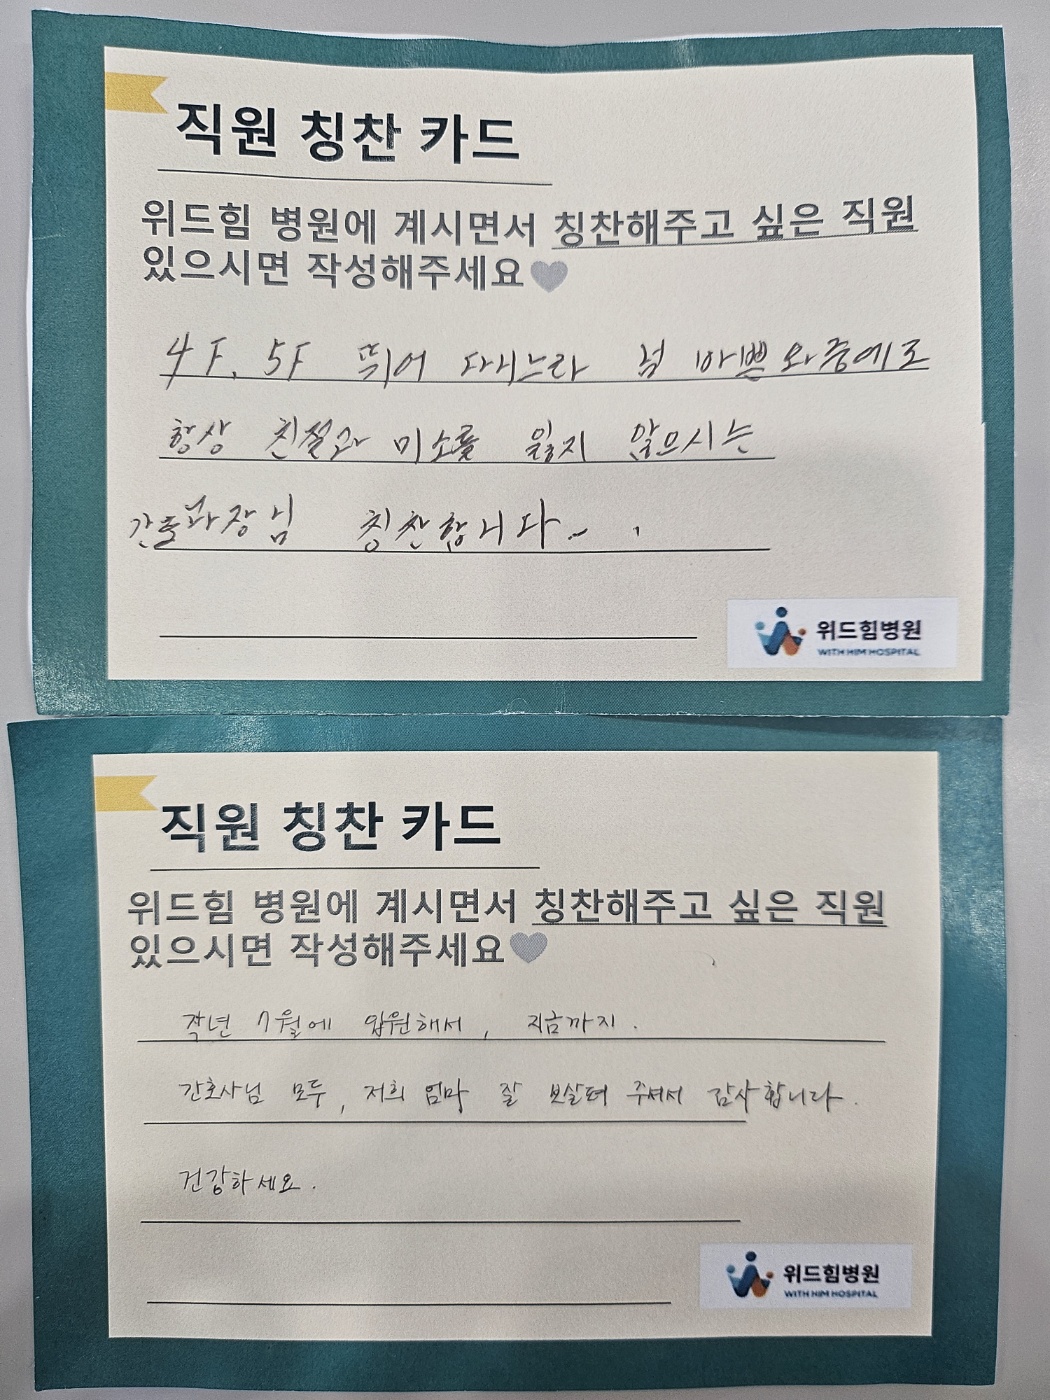 직원 칭찬 카드
위드힘 병원에 계시면서 칭찬해주고 싶은 직원
있으시면 작성해주세요
4F, 5F 뛰어 다니느라 넘 바쁜 와중에도
항상 친절과 미소를 잃지 않으시는
간호과장님 칭찬합니다~.
위드힘병원
WITH HIM HOSPITAL
직원 칭찬 카드
위드힘 병원에 계시면서 칭찬해주고 싶은 직원
있으시면 작성해주세요
작년 7월에 입원해서, 지금까지.
간호사님 모두, 저희 엄마 잘 보살펴 주셔서 감사합니다.
건강하세요.
위드힘병원
WITH HIM HOSPITAL